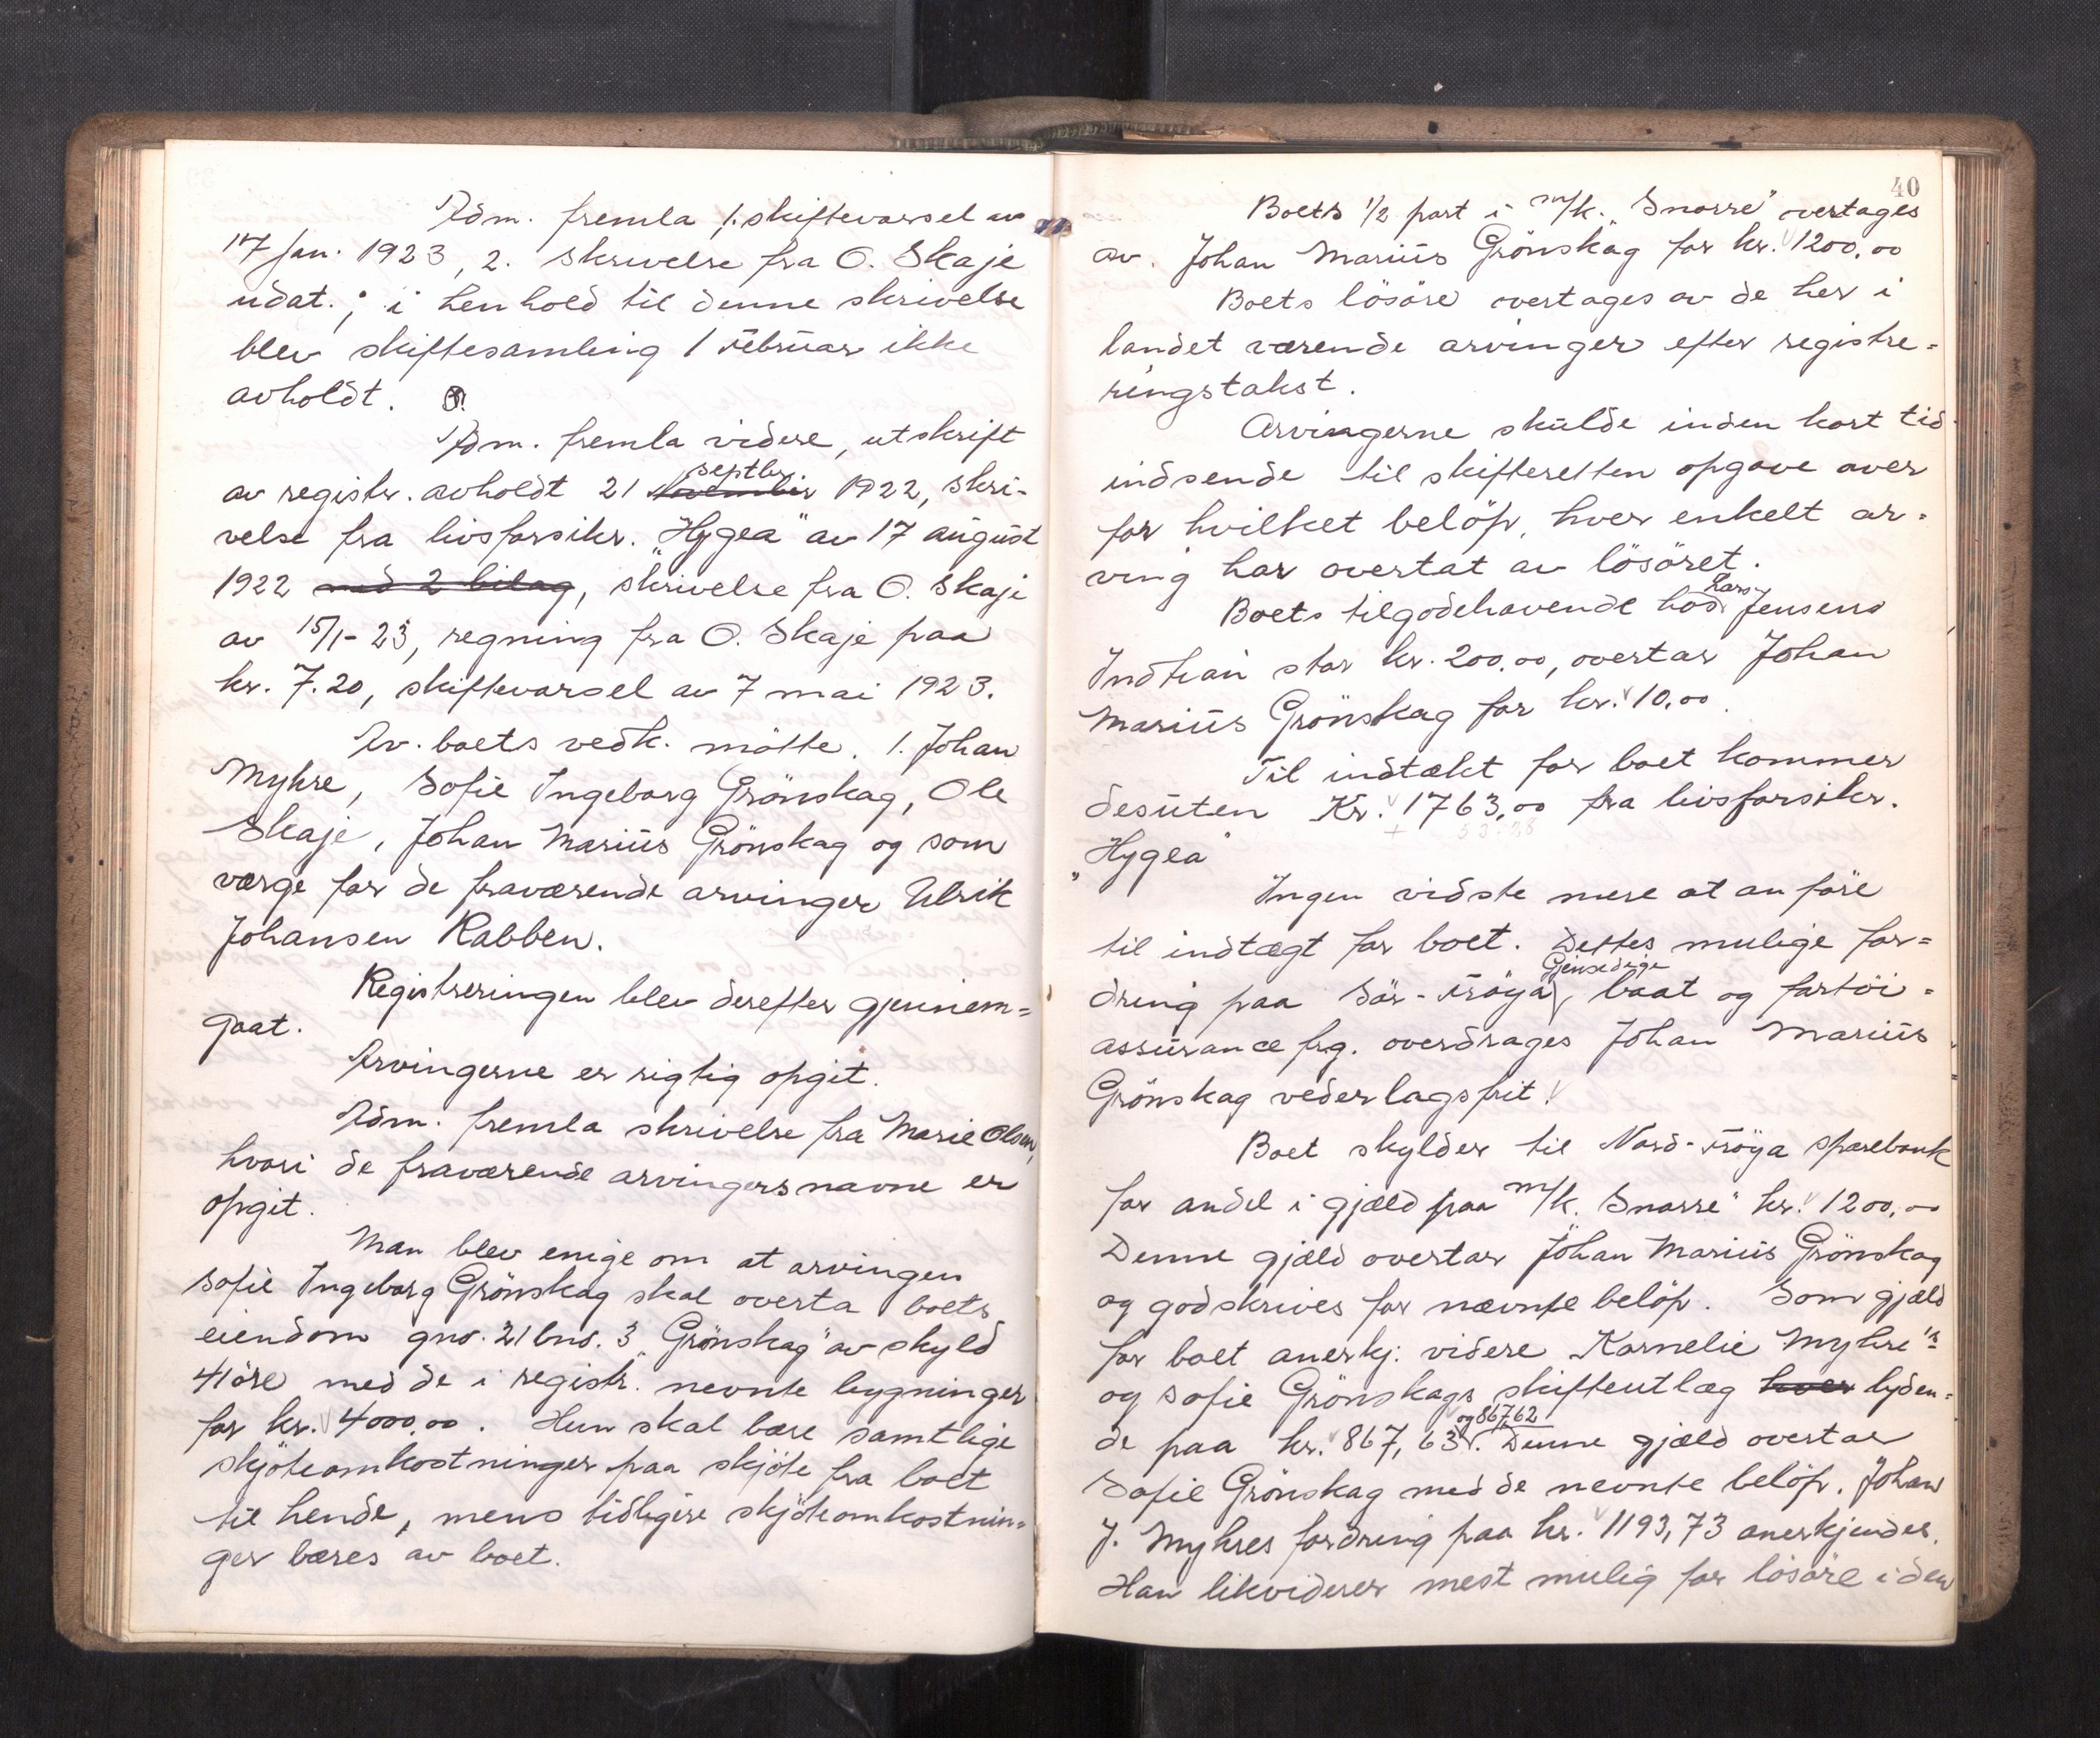 Adm. fremla 1. skiftevarsel av
17 jan. 1923, 2. skrivelse fra O. Skaje
udat.; i henhold til denne skrivelse
blev skiftesamling 1 februar ikke
avholdt.
Adm. fremla videre, utskrift
septbr.
av registr. avholdt 21 november 1922, skri-
velse fra livsforsikr. "Hygea" av 17 august
1922 med 2 bilag, skrivelse fra O. Skaje
av 15/1-23, regning fra O. Skaje paa
kr. 7.20, skiftevarsel av 7 mai 1923.
Av boets vedk. mötte. 1. Johan
Myhre, Sofie Ingeborg Grönskag, Ole
Skaje, Johan Marius Grönskag og som
værge for de fraværende arvinger Ulrik
Johansen Rabben.
Registreringen blev derefter gjennem=
gaat.
Arvingerne er rigtig opgit.
Adm. fremla skrivelse fra Marie Olsen,
hvori de fraværende arvingers navne er
opgit.
Man blev enige om at arvingen
Sofie Ingeborg Grönskag skal overta boets
eiendom gno. 21 bno. 3 "Grönskag" av skyld
41 öre med de i registr. nevnte bygninger
for kr. 4000,00. Hun skal bære samtlige
skjöteomkostninger paa skjöte fra boet
til hende, mens tidligere skjöteomkostnin=
ger bæres av boet.
40
Boets 1/2 part i m/k. "Snorre" overtages
av. Johan Marius Grönskag for kr. 1200,00
Boets lösöre overtages av de her i
landet værende arvinger efter registre=
ringstakst.
Arvingerne skulde inden kort tid
indsende til skifteretten opgave over
for hvilket belöp hver enkelt ar=
ving har overtat av lösöret.
Lars
Boets tilgodehavende hos Jensens
stor kr. 200,00, overtar Johan
Marius Grönskag for kr. 10,00.
Til indtækt for boet kommer
desuten Kr. 1763,00 fra livsforsikr.
"Hygea"
Ingen vidste mere at anföre
til indtægt for boet. Dettes mulige for=
Gjensidige
dring paa Sör-Fröya baat og fartöi=
assurance frg. overdrages Johan Marius
Grönskag vederlagsfrit!
Boet skylder til Nord-Fröya sparebank
for andel i gjæld paa m/k. "Snorre" kr. 1200,00
Denne gjæld overtar Johan Marius Grönskag
og godskrives for nævnte belöp. Som gjæld
for boet anerkj. videre Kornelie Myhre's
og Sofie Grönskags skifteutlæg hver lyden=
og 867,62
de paa kr. 867,63. Denne gjæld overtar
Sofie Grönskag med de nevnte belöp. Johan
J. Myhres fordring paa kr. 1193,73 anerkjendes.
Han likviderer mest mulig for lösöre i den